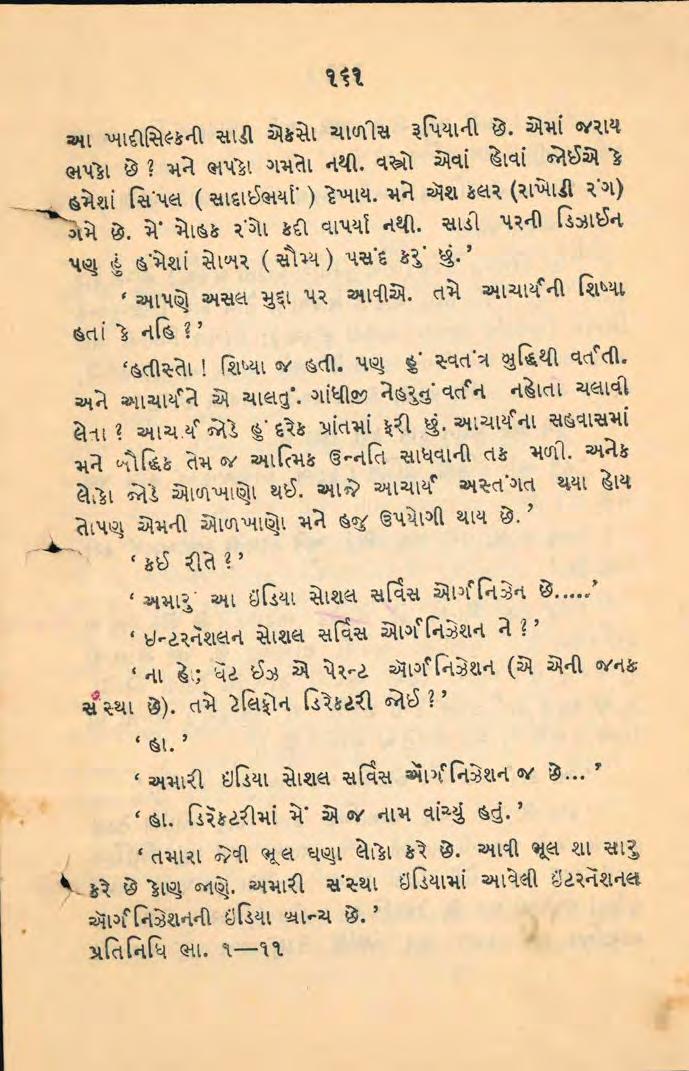 ૧૬૧
આ ખાદીસિલ્કની સાડી એકસો ચાળીસ રૂપિયાની છે. એમાં જરાય
ભપકો છે ? મને ભપકો ગમતો નથી. વસ્ત્રો એવાં હોવાં જોઈએ કે
હમેશાં સિંપલ ( સાદાઈભર્યાં ) દેખાય. મને ઍશ કલર (રાખોડી રંગ)
ગમે છે. મેં મોહક રંગો કદી વાપર્યા નથી. સાડી પરની ડિઝાઈન
પણ હું હંમેશાં સોબર ( સૌમ્ય ) પસંદ કરું છું.’
‘ આપણે અસલ મુદ્દા પર આવીએ. તમે આચાર્યની શિષ્યા
હતાં કે નહિ ?’
‘હતીસ્તો ! શિષ્યા જ હતી. પણ હું સ્વતંત્ર બુદ્ધિથી વર્તતી.
અને આચાર્યને એ ચાલતું. ગાંધીજી નેહરુનું વર્તન નહોતા ચલાવી
લેતા ? આચાર્ય જોડે હું દરેક પ્રાંતમાં ફરી છું. આચાર્યના સહવાસમાં
મને બૌદ્ધિક તેમ જ આત્મિક ઉન્નતિ સાધવાની તક મળી. અનેક
લોકો જોડે ઓળખાણો થઈ. આજે આચાર્ય અસ્તંગત થયા હોય
તોપણ એમની ઓળખાણો મને હજુ ઉપયોગી થાય છે.’
‘ કઈ રીતે ?’
‘ અમારું આ ઇંડિયા સોશલ સર્વિસ ઓર્ગનિઝેન છે.....’
‘ ઇન્ટરનૅશલન સોશલ સર્વિસ ઓર્ગનિઝેશન ને ?’
‘ ના હો; ધૅટ ઈઝ એ પેરન્ટ ઑર્ગનિઝેશન (એ એની જનક
સંસ્થા છે). તમે ટેલિફોન ડિરેકટરી જોઈ ?’
‘ હા.’
‘ અમારી ઇંડિયા સોશલ સર્વિસ ઑર્ગનિઝેશન જ છે... ’
‘ હા. ડિરૅકટરીમાં મેં એ જ નામ વાંચ્યું હતું.’
‘ તમારા જેવી ભૂલ ઘણા લોકો કરે છે. આવી ભૂલ શા સારુ
કરે છે કોણ જાણે. અમારી સંસ્થા ઇંડિયામાં આવેલી ઇંટરનૅશનલ
ઑર્ગનિઝેશનની ઇંડિયા બ્રાન્ચ છે.’
પ્રતિનિધિ ભા. ૧—૧૧